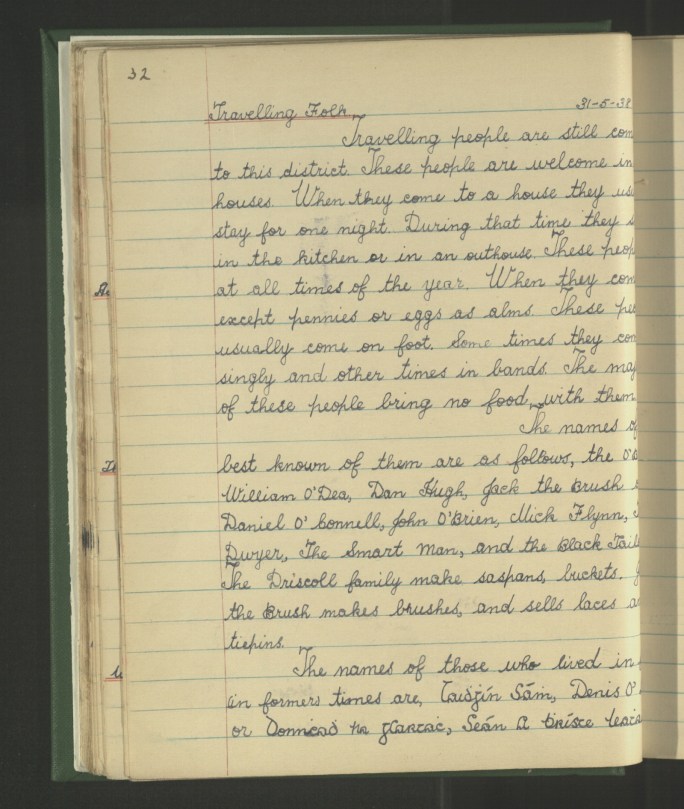 32
Travelling Folk. 31-5-38
Travelling people are still com
to this district. These people are welcome in
houses. When they come to a house they usu
stay for one night. During that time they s
in the kitchen or in an outhouse. These peop
at all times of the year. When they com
except pennies or eggs as alms. These peo
usually come on foot. Some times they com
singly and other times in bands. The maj
of these people bring no food, with them
The names of
best known of them are as follows, the O'D
William O'Dea, Dan Hugh, Jack the Brush
Daniel O'Connell, John O'Brien, Mick Flynn,
Dwyer, The Smart Man, and the Black Tail
The Driscoll family make saspans, buckets.
the Brush makes brushes, and sells laces a
tiepins.
The names of those who lived in
in former times are, Taidhgín Sám, Denis O'
or Donncadh na gCartac, Seán A Bríste